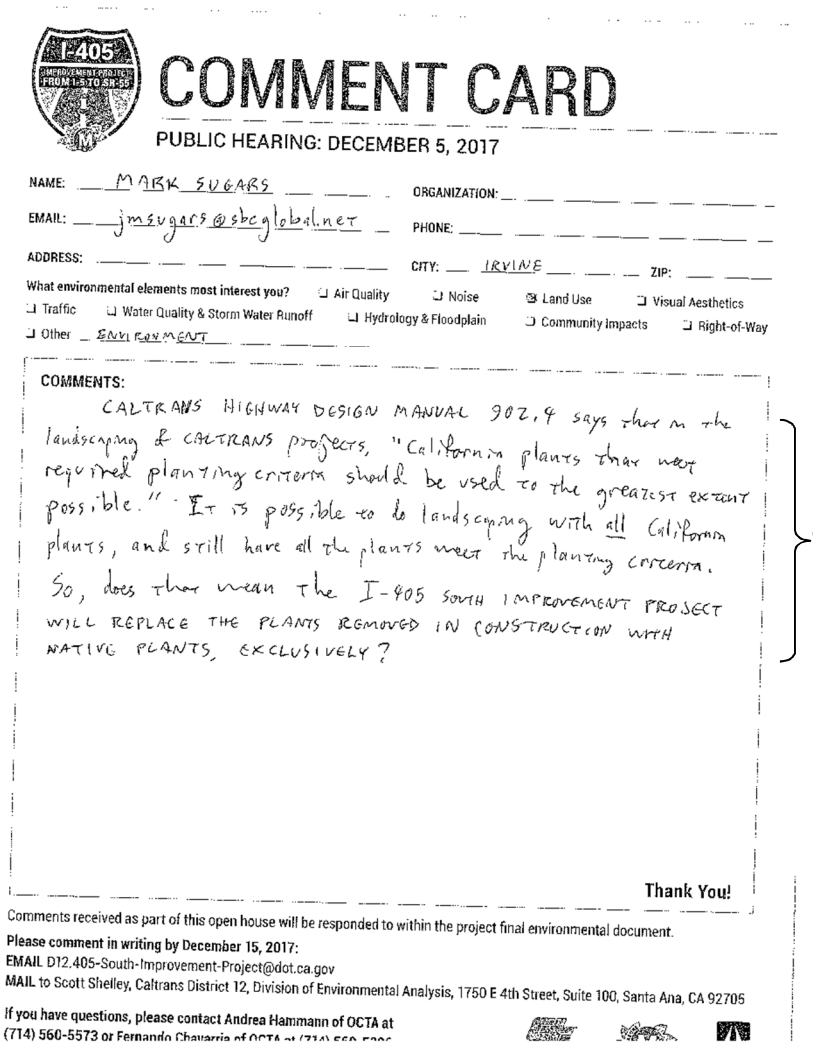 I-405
IMPROVEMENT PROJECT
FROM I-5 TO SR-55
M
COMMENT CARD
PUBLIC HEARING: DECEMBER 5, 2017
NAME: MARK SUGARS ORGANIZATION:
EMAIL: jmsugars@sbcglobal.net PHONE:
ADDRESS: CITY: IRVINE ZIP:
What environmental elements most interest you? ❑ Air Quality ❑ Noise ☒ Land Use ❑ Visual Aesthetics
❑ Traffic ❑ Water Quality & Storm Water Runoff ❑ Hydrology & Floodplain ❑ Community Impacts ❑ Right-of-Way
❑ Other ENVIRONMENT
COMMENTS:
CALTRANS HIGHWAY DESIGN MANUAL 902.4 says that in the
landscaping of CALTRANS projects, "California plants that meet
required planting criteria should be used to the greatest extent
possible." It is possible to do landscaping with all California
plants, and still have all the plants meet the planting criteria.
So, does that mean the I-405 SOUTH IMPROVEMENT PROJECT
WILL REPLACE THE PLANTS REMOVED IN CONSTRUCTION WITH
NATIVE PLANTS, EXCLUSIVELY?
Thank You!
Comments received as part of this open house will be responded to within the project final environmental document.
Please comment in writing by December 15, 2017:
EMAIL D12.405-South-Improvement-Project@dot.ca.gov
MAIL to Scott Shelley, Caltrans District 12, Division of Environmental Analysis, 1750 E 4th Street, Suite 100, Santa Ana, CA 92705
If you have questions, please contact Andrea Hammann of OCTA at
(714) 560-5573 or Fernando Chavarria of OCTA at (714)